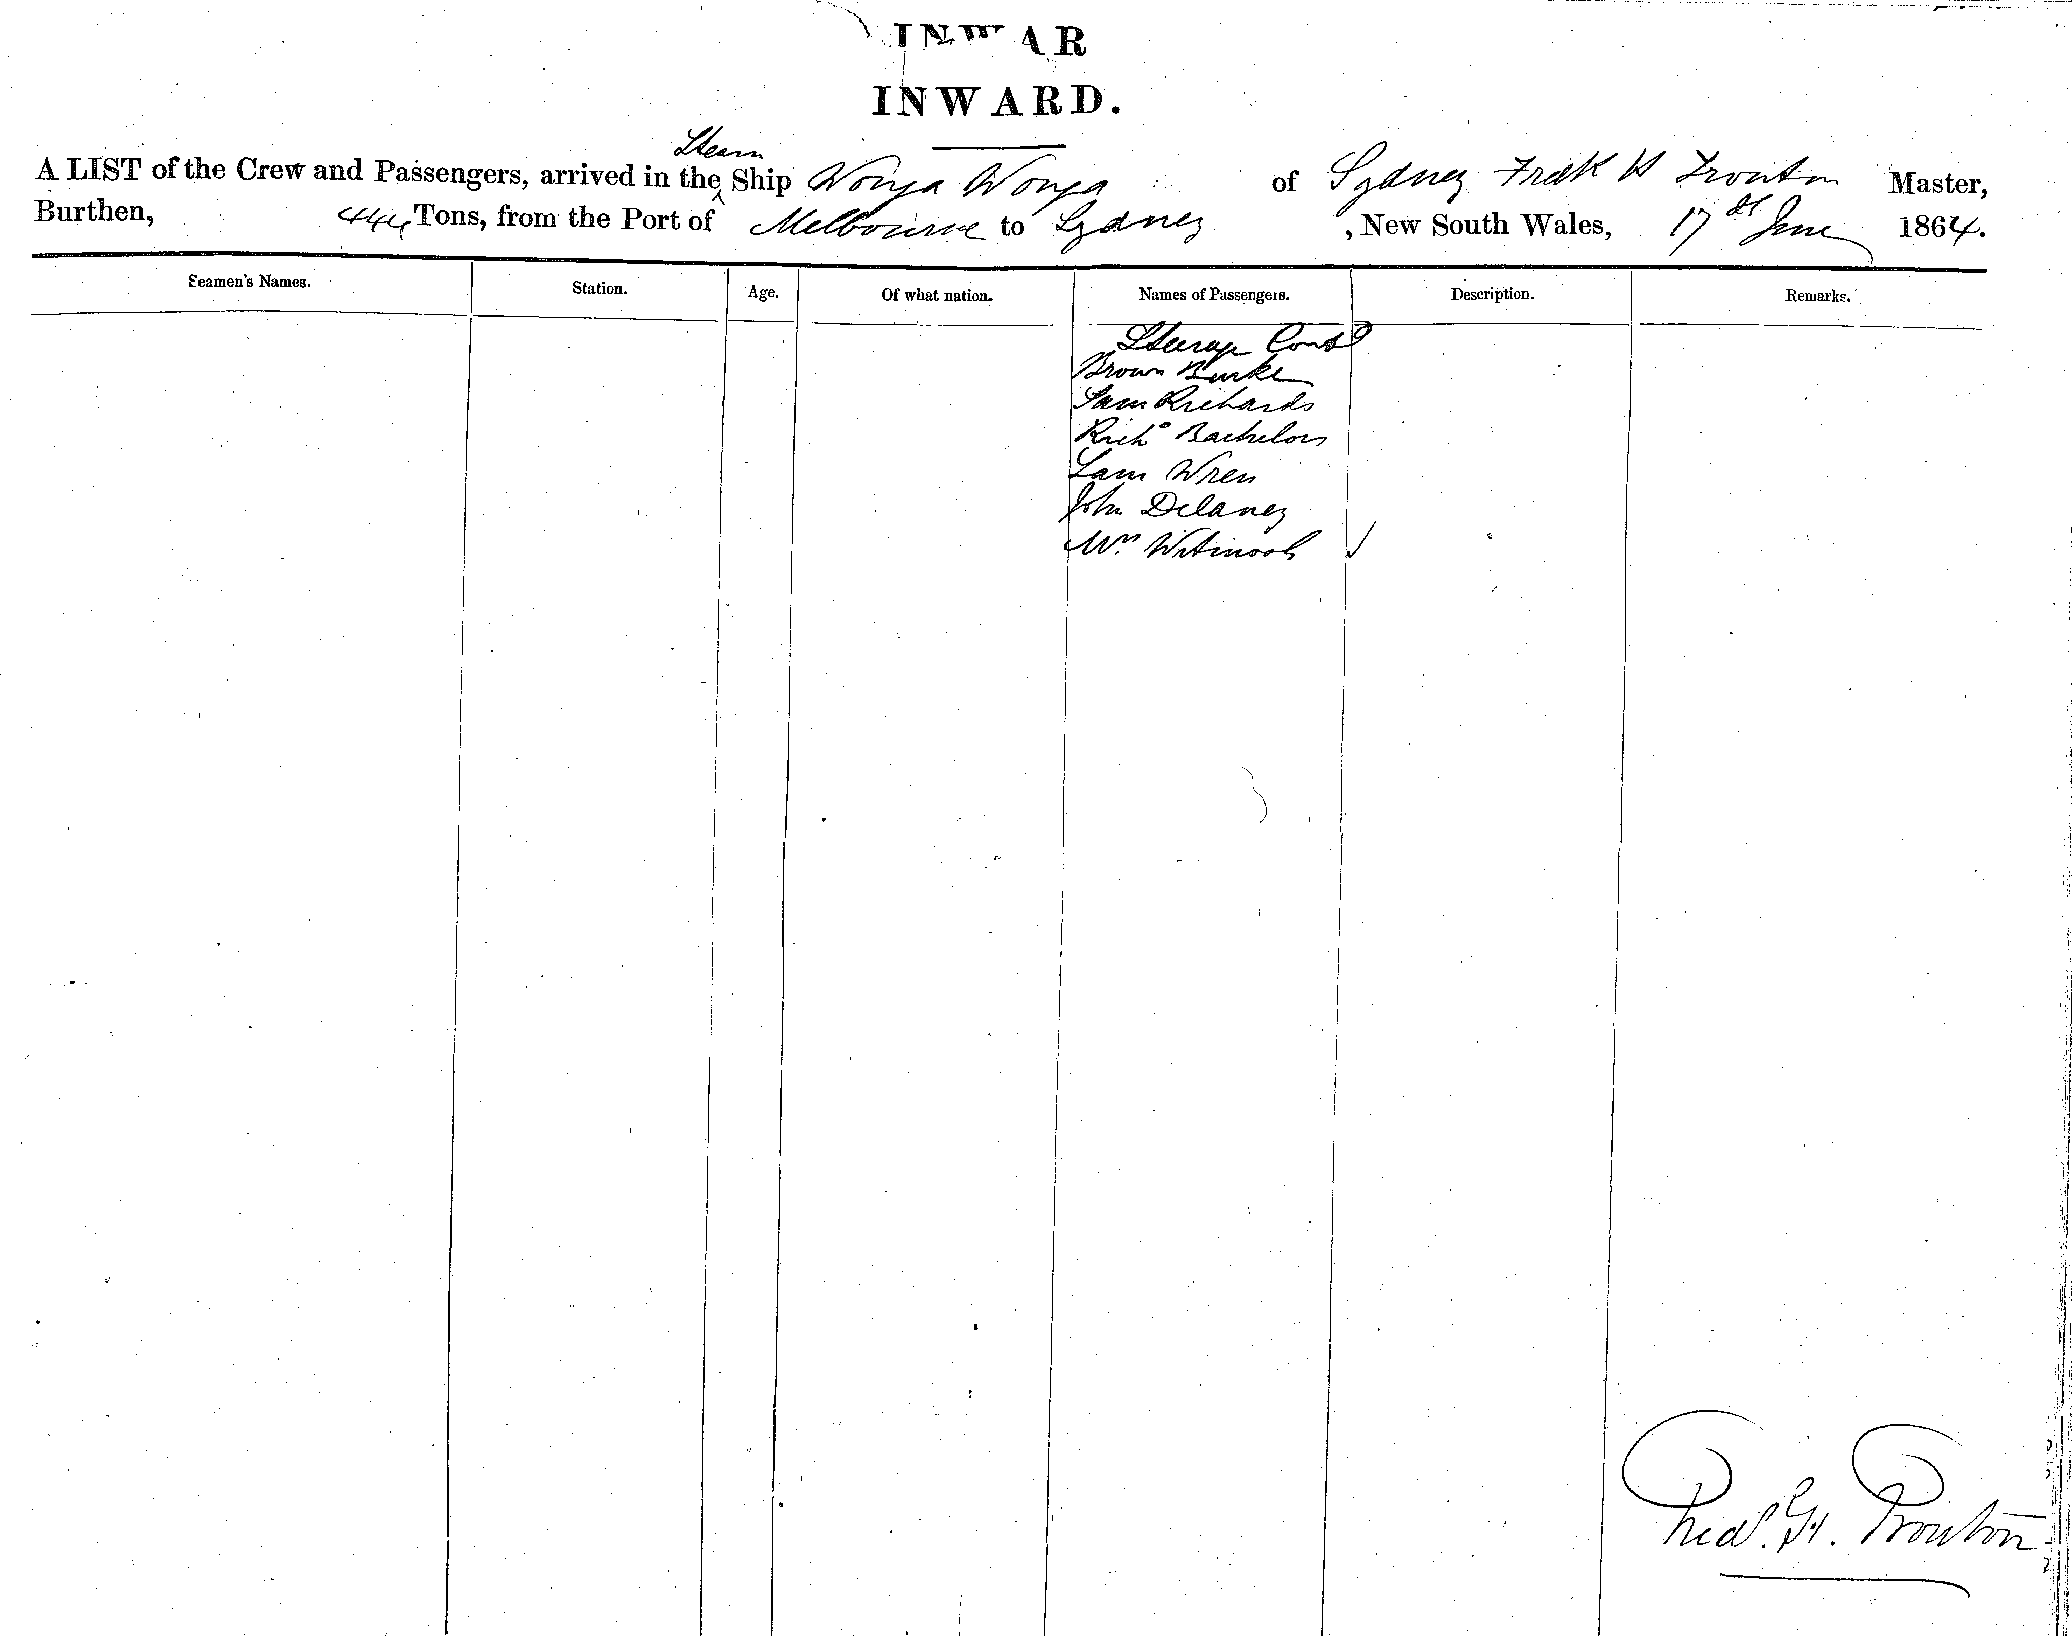 INWAR
INWARD.
Steam
A LIST of the Crew and Passengers, arrived in the ^ Ship Wonga Wonga of Sydney Fredk H Trouton Master,
Burthen, 446 Tons, from the Port of Melbourne to Sydney , New South Wales, 17th June 1864.
Seamen's Names. Station. Age. Of what nation. Names of Passengers. Description. Remarks.
Steerage Contd
Brown Burke
Sam Richards
Richd Bachelor
Sam Wren
John Delaney
Wm
Fredk. H. Trouton